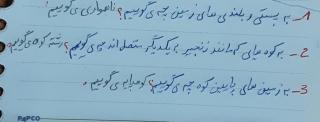 1- به پستی و بلندی های زمین چه می گوییم؟ ناهمواری می گوییم.
2- به کوه هایی که مانند زنجیر به یکدیگر متصل اند چه می گوییم؟ رشته کوه می گوییم.
3- به زمین های پایین کوه چه می گوییم؟ کوهپایه می گوییم.
PAPCO